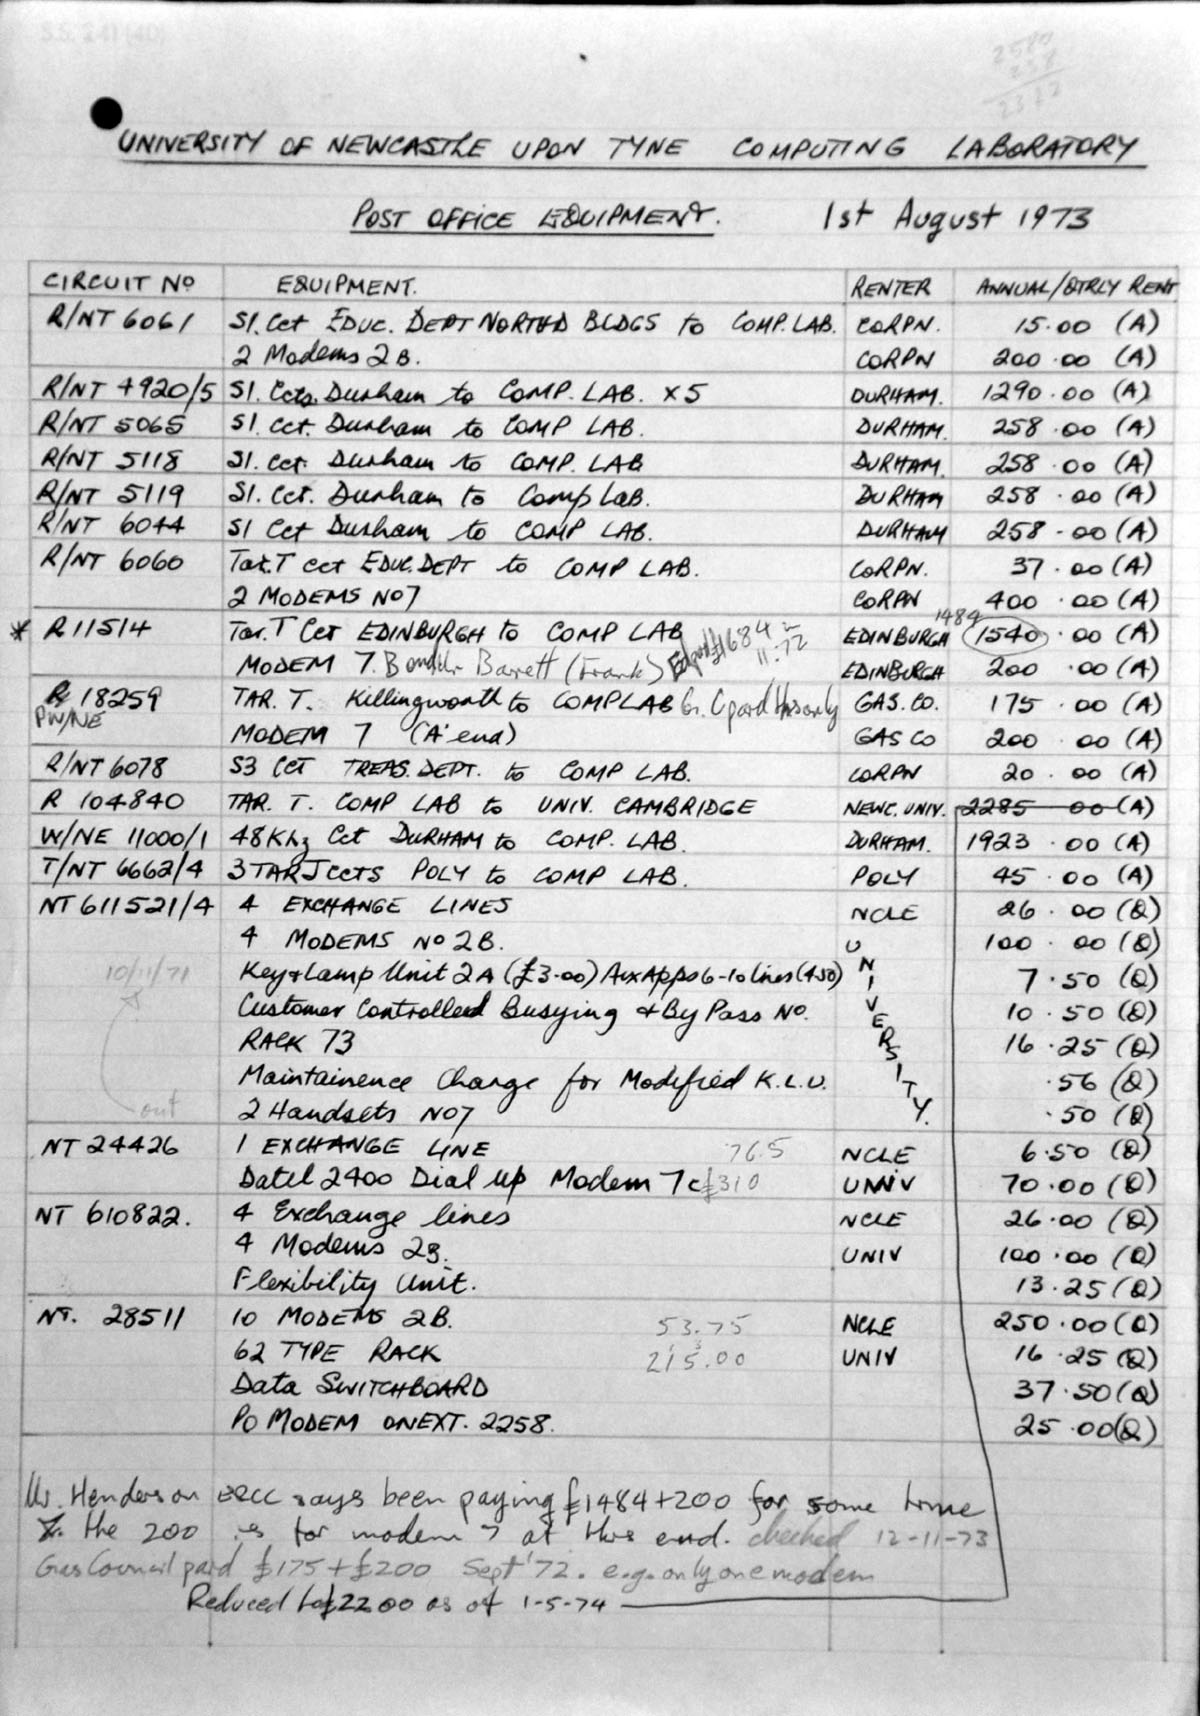 S.S. 241 (40)
2580
258
2322
UNIVERSITY OF NEWCASTLE UPON TYNE COMPUTING LABORATORY
POST OFFICE EQUIPMENT. 1st August 1973
CIRCUIT No EQUIPMENT. RENTER ANNUAL/QTRLY RENT
R/NT 6061 S1. Cct EDUC. DEPT NORTH'D BLDGS to COMP. LAB. CORPN. 15.00 (A)
2 Modems 2B. CORPN 200.00 (A)
R/NT 4920/5 S1. Ccts. Durham to COMP. LAB. x5 DURHAM. 1290.00 (A)
R/NT 5065 S1. Cct. Durham to COMP LAB. DURHAM. 258.00 (A)
R/NT 5118 S1. Cct. Durham to COMP. LAB DURHAM. 258.00 (A)
R/NT 5119 S1. Cct. Durham to Comp Lab. DURHAM 258.00 (A)
R/NT 6044 S1 Cct Durham to COMP LAB. DURHAM 258.00 (A)
R/NT 6060 Tar.T cct EDUC. DEPT to COMP LAB. CORPN. 37.00 (A)
2 MODEMS No7 CORPN 400.00 (A)
* R11514 Tar.T Cct EDINBURGH to COMP LAB £1684 11.72 EDINBURGH 1484 1540.00 (A)
MODEM 7. Barrett (Frank) EDINBURGH 200.00 (A)
R 18259 TAR. T. Killingworth to COMP LAB GAS. CO. 175.00 (A)
PW/NE MODEM 7 (A' end) GAS CO 200.00 (A)
R/NT 6078 S3 CCT TREAS. DEPT. to COMP LAB. CORPN 20.00 (A)
R 104840 TAR. T. COMP LAB to UNIV. CAMBRIDGE NEWC. UNIV. 2285 00 (A)
W/NE 11000/1 48Khz Cct DURHAM to COMP. LAB. DURHAM. 1923.00 (A)
T/NT 6662/4 3 TARJ CCTS POLY to COMP LAB. POLY 45.00 (A)
NT 611521/4 4 EXCHANGE LINES NCLE 26.00 (Q)
4 MODEMS No 2B. UNIVERSITY. 100.00 (Q)
10/11/71 Key & Lamp Unit 2A (£3.00) Aux Apps 6-10 lines (4.50) 7.50 (Q)
Customer Controlled Busying & By Pass No. 10.50 (Q)
RACK 73 16.25 (Q)
Maintainence Charge for Modified K.L.U. .56 (Q)
out 2 Handsets No7 .50 (Q)
NT 24426 1 EXCHANGE LINE 76.5 NCLE 6.50 (Q)
Datel 2400 Dial up Modem 7c £310 UNIV 70.00 (Q)
NT 610822. 4 Exchange lines NCLE 26.00 (Q)
4 Modems 2B. UNIV 100.00 (Q)
Flexibility Unit. 13.25 (Q)
NT. 28511 10 MODEMS 2B. 53.75 NCLE 250.00 (Q)
62 TYPE RACK 215.00 UNIV 16.25 (Q)
Data SWITCHBOARD 37.50 (Q)
PO MODEM ON EXT. 2258. 25.00 (Q)
Mr. Henderson ERCC says been paying £1484+200 for some time
the 200 is for modem 7 at this end. checked 12-11-73
Gas Council paid £175+£200 Sept '72. e.g. only one modem
Reduced to £2200 as of 1-5-74